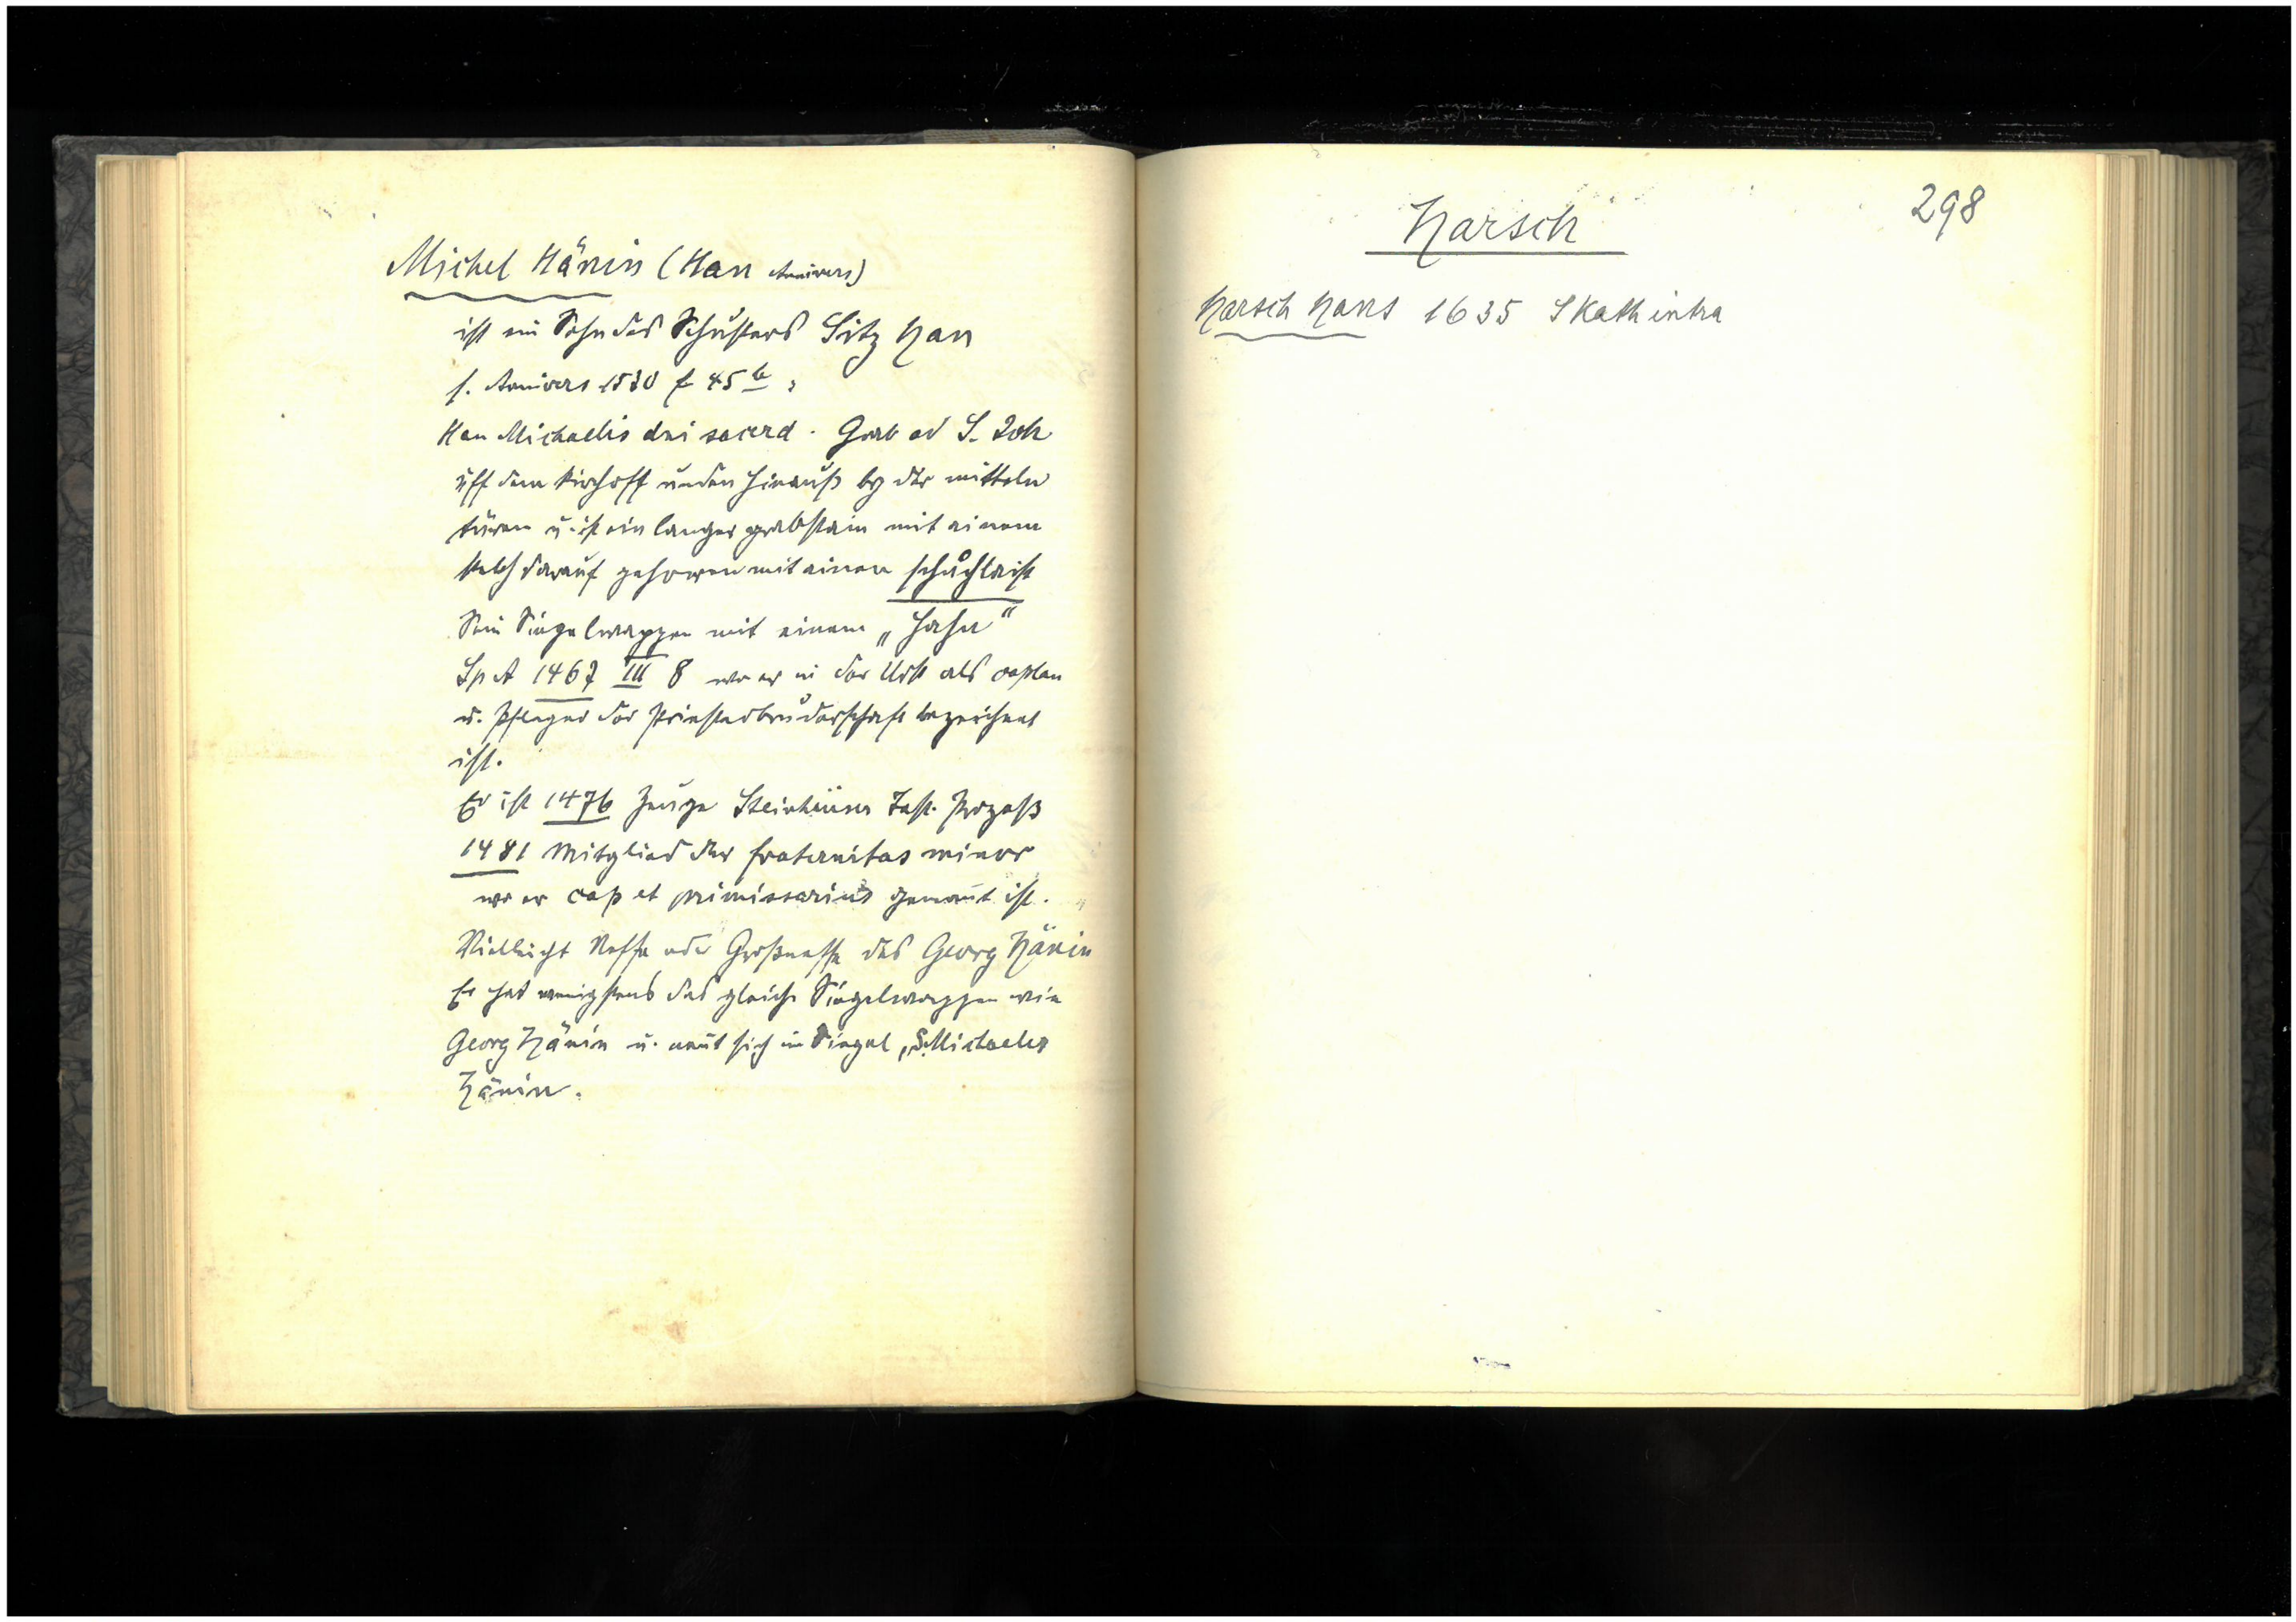 Michel Hänin (Han Annivers)
ist ein Sohn des Schusters Litz Han
s. Annivers 1530 f 45 b:
Han Michaelis dni sacerd. Grab ad S. Joh
uff dem kirchoff unden hinauß by der mitteln
türen u. ist ein langer grabstain mit ainem
kelch darauf gehowen mit ainem schůchlaist
Sein Siegelwappen mit einem „Hahn“
Sp A 1467 III 8 wo er in der Urk als caplan
u. Pfleger der Priesterbruderschaft bezeichnet
ist.
Er ist 1476 Zeuge Test. Prozeß
1481 Mitglied der fraternitas minor
wo er cap et primissarius genan̄t ist.
Vielleicht Neffe oder Großneffe des Georg Hänin
Er hat wenigstens das gleiche Siegelwappen wie
Georg Hänin u. nen̄t sich im Siegel „S. Michaelis
Hänin.
298
Harsch
Harsch Hans 1635 S Kath intra